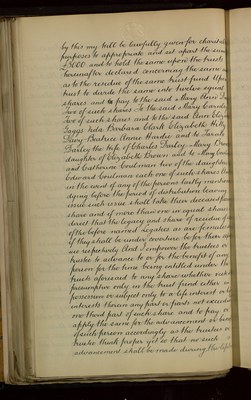 by this my will be lawfully given for charitable
purposes to appropriate and set apart the sum
£3000 and to hold the same upon the trusts
hereinafter declared concerning the same
as to the residue of the same trust fund Upon
trust to divide the same into twelve equal
shares and to pay to the said Mary Ann
two of such shares To the said Mary Caroline
two of such shares and to the said Ann Eliza
Barbara Clark Elizabeth
Beatrice Annie Hardie and to Sarah
Darley the wife of Charles Darley Mary
daughter of Elizabeth Brown and to Mary
and Catherine Coulman two of the daughters
Edward Coulman each one of such shares
in the event of any of the persons lastly
dying before the period of distribution leaving
issue such issue shall take their deceased
share and if more than one in equal shares
direct that the legacy and share of residue
of the before named legatees as are females
if they shall be under coverture be for their
use respectively And I empower the trustees or
trustee to advance to or for the benefit of any
person for the time being entitled under the
trusts aforesaid to any share whether
presumptive only in the trust fund either in
possession or subject only to a life interest or
interests therein any part or parts not exceeding
one third part of such share and to pay or
apply the same for the advancement or
of such person accordingly as the trustees or
trustee think proper yet so that no such
advancement shall be made during the